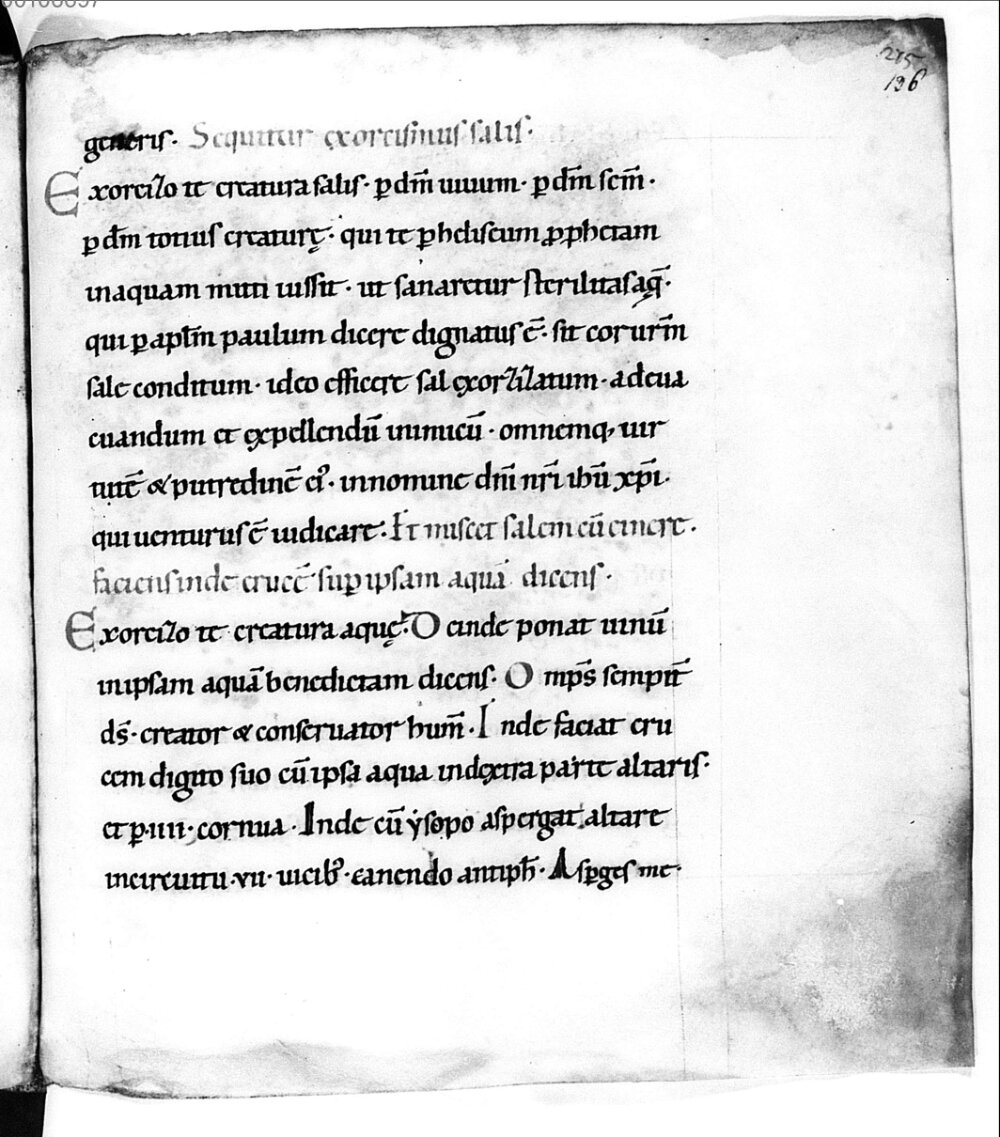 215
136
generis. Sequitur exorcismus salis.
Exorcizo te creatura salis. p dm̄ uiuum. p dm̄ scm̄.
p dm̄ totius creaturę. qui te p heliseum ꝓphetam
inaquam mitti iussit. ut sanaretur sterilitas aq̄.
qui p aplm̄ paulum dicere dignatus ē. sit cor urm̄
sale conditum. ideo efficere sal exorzizatum. adeua
cuandum et expellendū inimicū. omnemq, uir
tutē & putredinē ei᾿. innomine dnī nrī ihū xpī.
qui uenturus ē iudicare. Et misceet salem cū cinere.
faciens inde crucē sup ipsam aquā dicens.
Exorcizo te creatura aquę. Deinde ponat uinū
inipsam aquā benedictam dicens. Omps̄ sempit̄
ds̄. creator & conseruator hum̄. Inde faciat cru
cem digito suo cū ipsa aqua indextra parte altaris.
et p .iiii. cornua. Inde cū ysopo aspergat altare
incircuitu .vii. uicib᾿. canendo antiph̄. Aspges me.